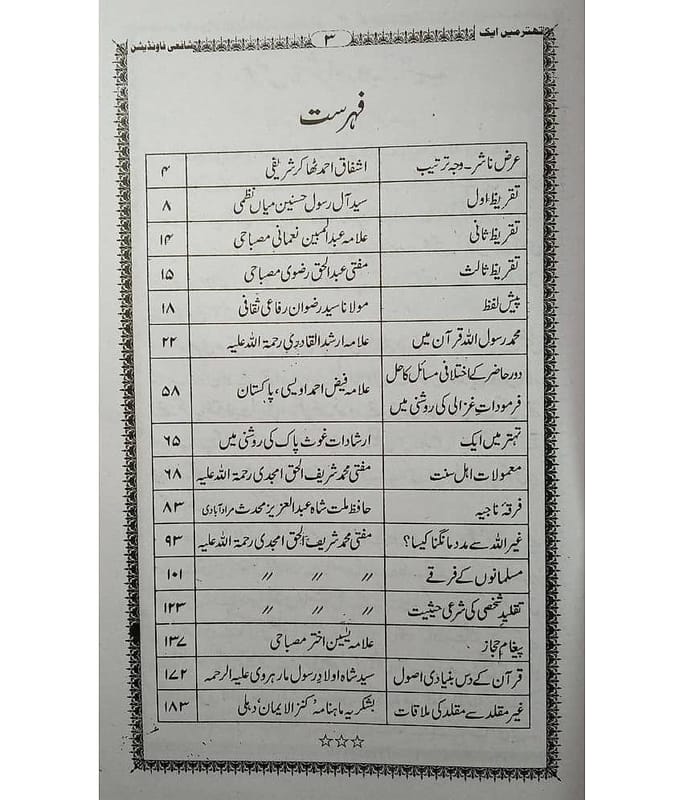 تہتر میں ایک ۳ شافعی فاونڈیشن
فہرست
عرض ناشر۔وجہ ترتیب اشفاق احمد ٹھاکر شریفی ۴
تقریظ اول سید آل رسول حسنین میاں نظمی ۸
تقریظ ثانی علامہ عبدالمبین نعمانی مصباحی ۱۴
تقریظ ثالث مفتی عبدالحق رضوی مصباحی ۱۵
پیش لفظ مولانا سید رضوان رفاعی ثقافی ۱۸
محمد رسول اللہ قرآن میں علامہ ارشد القادری رحمۃ اللہ علیہ ۲۲
دور حاضر کے اختلافی مسائل کا حل
فرمودات غزالی کی روشنی میں علامہ فیض احمد اویسی، پاکستان ۵۸
تہتر میں ایک ارشادات غوث پاک کی روشنی میں ۶۵
معمولات اہل سنت مفتی محمد شریف الحق امجدی رحمۃ اللہ علیہ ۶۸
فرقۂ ناجیہ حافظ ملت شاہ عبدالعزیز محدث مرادآبادی ۸۳
غیر اللہ سے مدد مانگنا کیسا؟ مفتی محمد شریف الحق امجدی رحمۃ اللہ علیہ ۹۳
مسلمانوں کے فرقے // // // ۱۰۱
تقلید شخصی کی شرعی حیثیت // // // ۱۲۳
پیغام حجاز علامہ یٰسین اختر مصباحی ۱۳۷
قرآن کے دس بنیادی اصول سید شاہ اولاد رسول مارہروی علیہ الرحمہ ۱۷۲
غیر مقلد سے مقلد کی ملاقات بشکریہ ماہنامہ 'کنز الایمان' دہلی ۱۸۳
☆☆☆